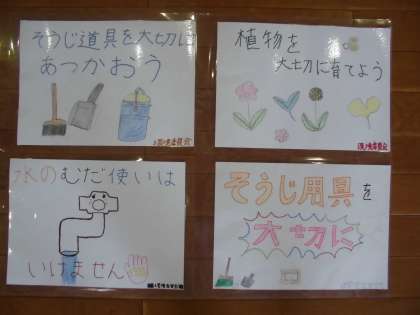 そうじ道具を大切に
あつかおう
植物を
大切に育てよう
水のむだ使いは
いけません
そうじ用具を
大切に